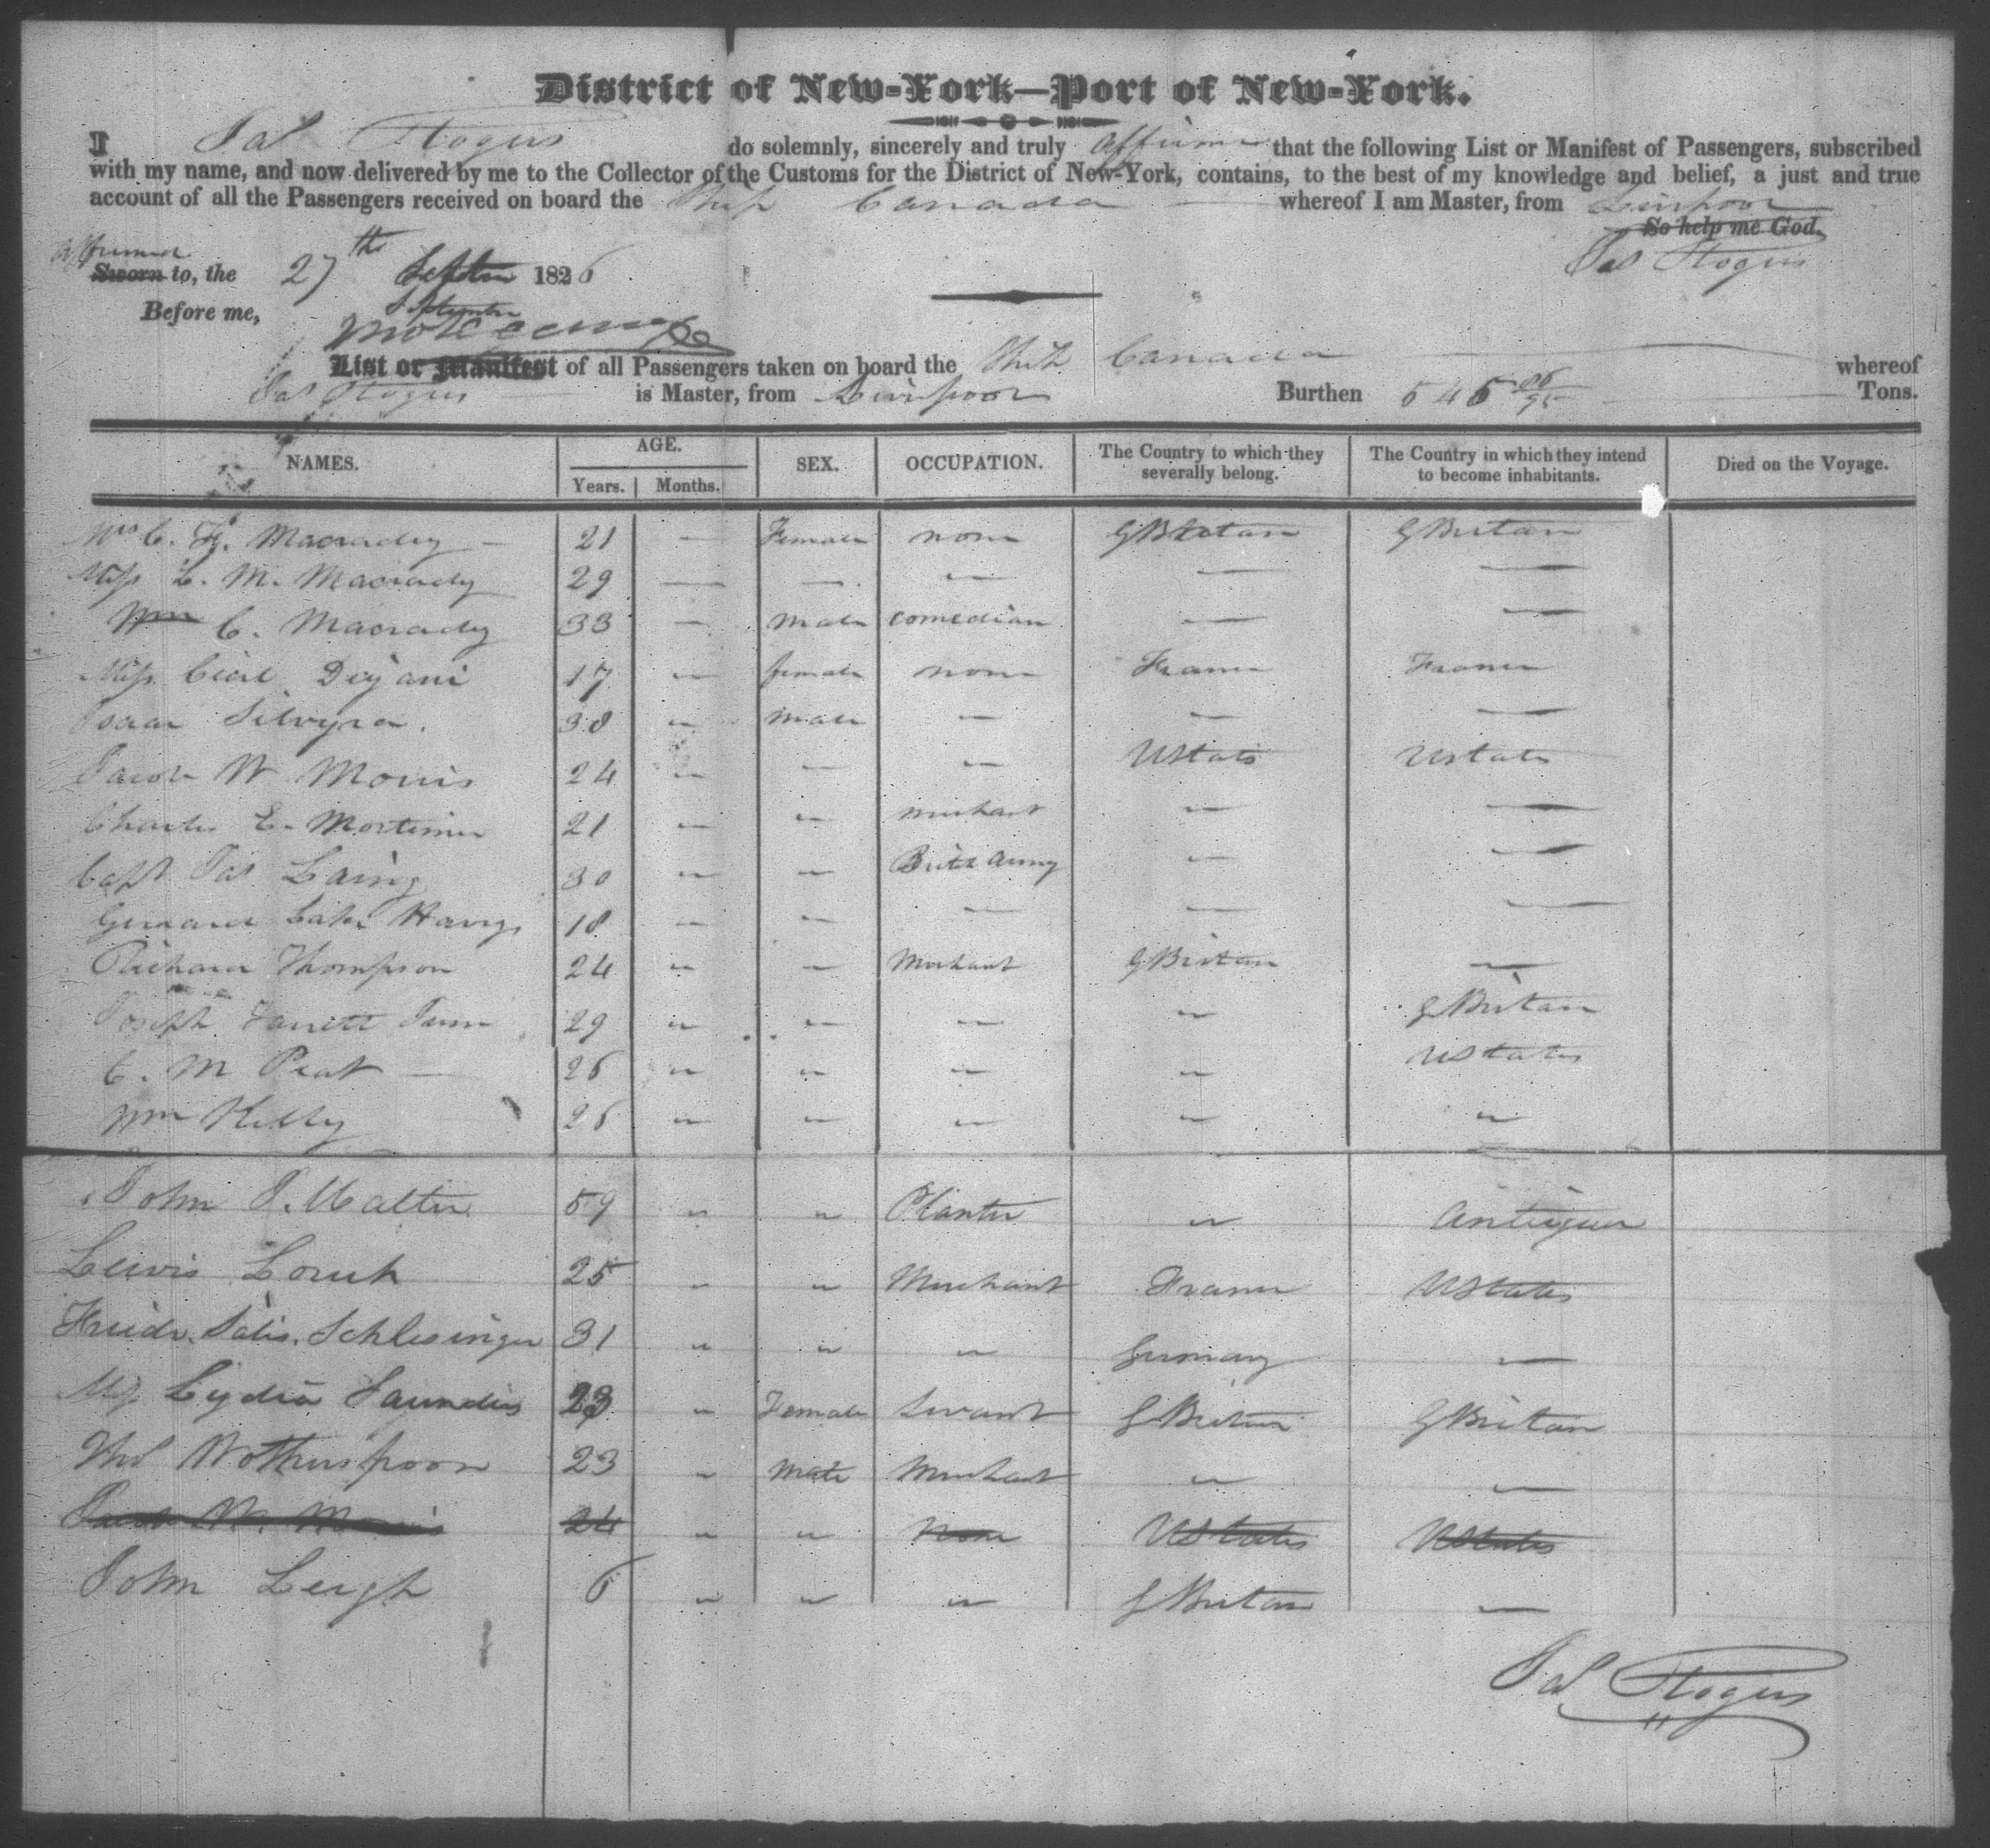 District of New-York—Port of New-York.
I Jas Rogers do solemnly, sincerely and truly affirm that the following List or Manifest of Passengers, subscribed
with my name, and now delivered by me to the Collector of the Customs for the District of New-York, contains, to the best of my knowledge and belief, a just and true
account of all the Passengers received on board the Ship Canada whereof I am Master, from Liverpool
So help me God.
affirmed Jas Rogers
Sworn to, the 27th Septem 1826
September
Before me,
List or Manifest of all Passengers taken on board the Ship Canada whereof
Jas Rogers is Master, from Liverpool Burthen 546 Tons.
NAMES. AGE. Years. Months. SEX. OCCUPATION. The Country to which they severally belong. The Country in which they intend to become inhabitants. Died on the Voyage.
Mrs C. F. Macready — 21 — Female none G Britain G Britain
Miss L. M. Macready 29 — — — — —
Wm C. Macready 33 — male comedian — —
Miss Cecil 17 " female none France France
Isaac Silvyra. 38 " male — — —
Jacob W Morris 24 " — " UStates UStates
Charles E. Mortimer 21 " " merchant " —
Capt Jas Laing 30 " " Brit army — —
18 " " — — —
Richard Thompson 24 " — Merchant G Britain —
Joseph 29 " " " " G Britain
C. M Peat — 26 " " " " UStates
Wm Kelly 26 " " " " "
John J. Walter 59 " " Planter " Antigua
Lewis 25 " " Merchant France UStates
Friedr. Salis. Schlesinger 31 " " " Germany —
Mis Lydia Saunders 23 " Female Servant G Britain G Britain
Ths Wotherspoon 23 " Male Merchant " —
Jacob W. Morris 24 " " None UStates UStates
John Leigh 6 " " " G Britain —
Jas Rogers